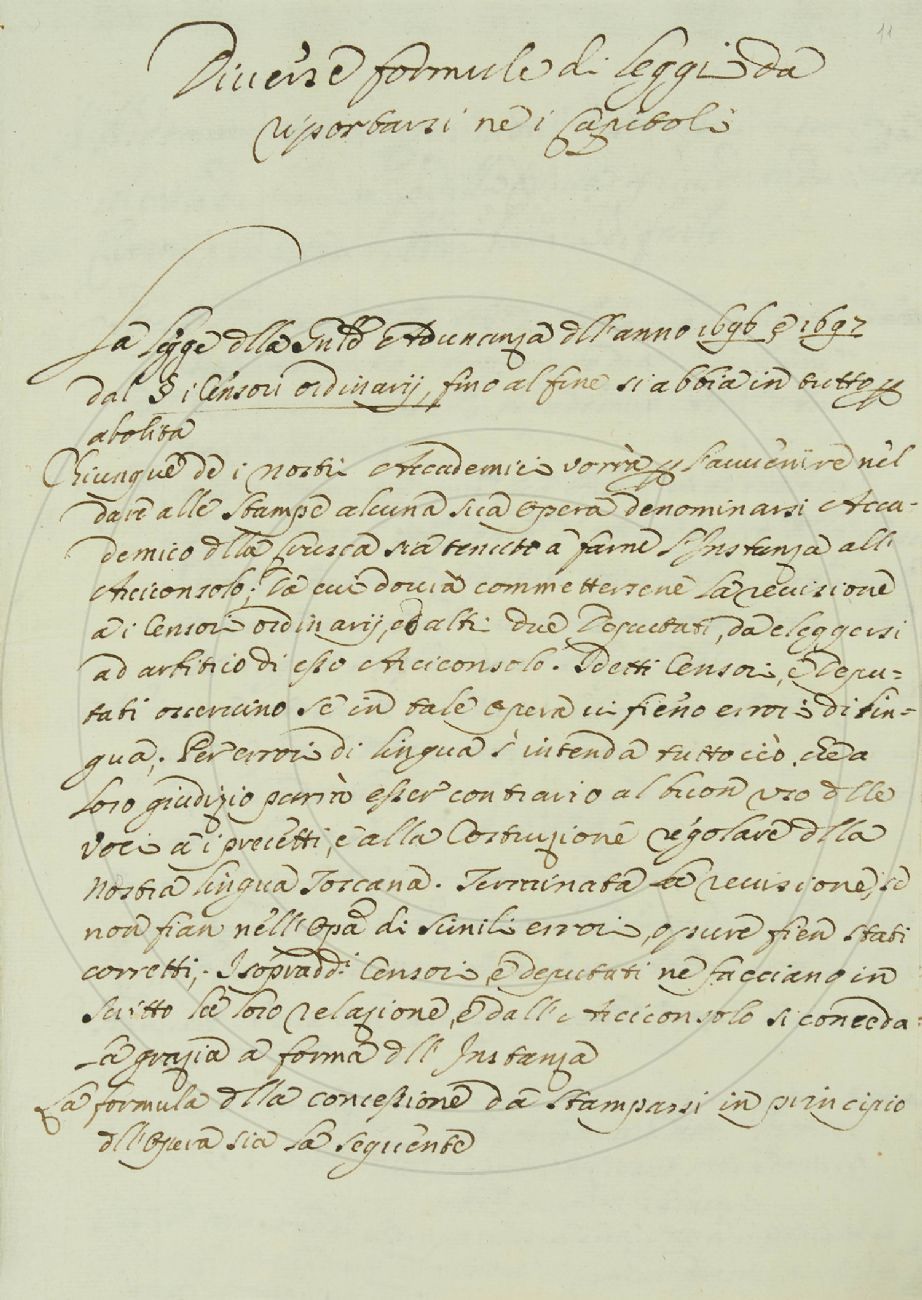 11
Diverse formule di leggi da
riportarsi ne i Capitoli
La legge dlla Intd.ª Adunanza dll'anno 1696 e 1697
dal § i Censori ordinarij, fino al fine si abbia in tutto p
abolita
Chiunque de i nostri Accademici vorrà p l'avvenire nel
dare alle stampe alcuna sua opera denominarsi Acca-
demico dlla Crusca sia tenuto a farne l'Instanza all'
Arciconsolo; Da cui dovrà commettersene la revisione
a i Censori ordinarij, ed altri due Deputati, da eleggersi
ad arbitrio di esso Arciconsolo. I detti Censori, e Depu=
tati osservino se in tale opera vi fieno errori di lin=
gua; Per errori di lingua s'intenda tutto ciò, che a
loro giudizio parrà esser contrario al buon uso dlle
voci a i precetti, e alla Costruzione regolare dlla
nostra lingua Toscana. Terminata la revisione, se
non fian nell'Opa di simili errori, oppure fien stati
corretti; I sopradd.i Censori, e deputati ne facciano in
scritto la loro relazione, e dall'Arciconsolo si conceda
la grazia a forma dll'Instanza
La formula dlla concessione da stamparsi in principio
dll'Opera sia la seguente